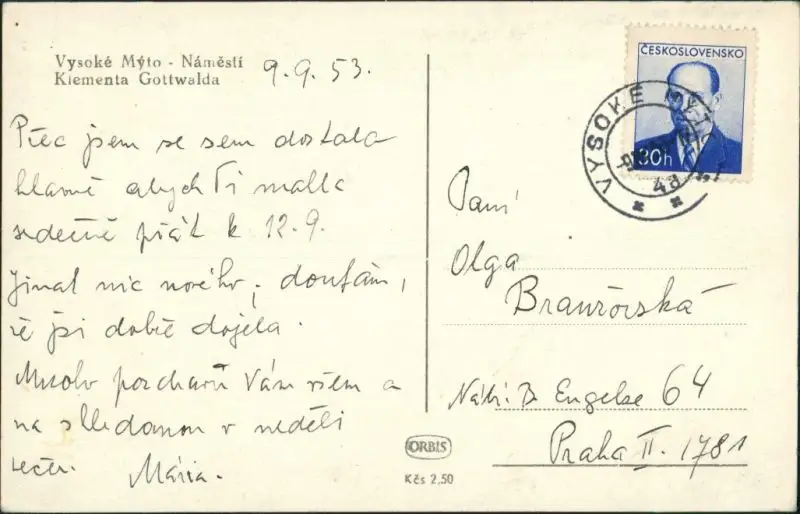 Vysoké Mýto - Náměstí
Klementa Gottwalda
9.9.53.
Přec jsem se sem dostala
hlavně abych Ti mohla
srdečně přát k 12.9.
Jinak nic nového, doufám,
že jsi dobře dojela.
pozdravů Vám všem a
na shledanou v neděli
večer. Mária.
ČESKOSLOVENSKO
30h
VYSOKÉ MÝTO
Paní
Olga
Engelse 64
Praha II. 1781
ORBIS
Kčs 2,50